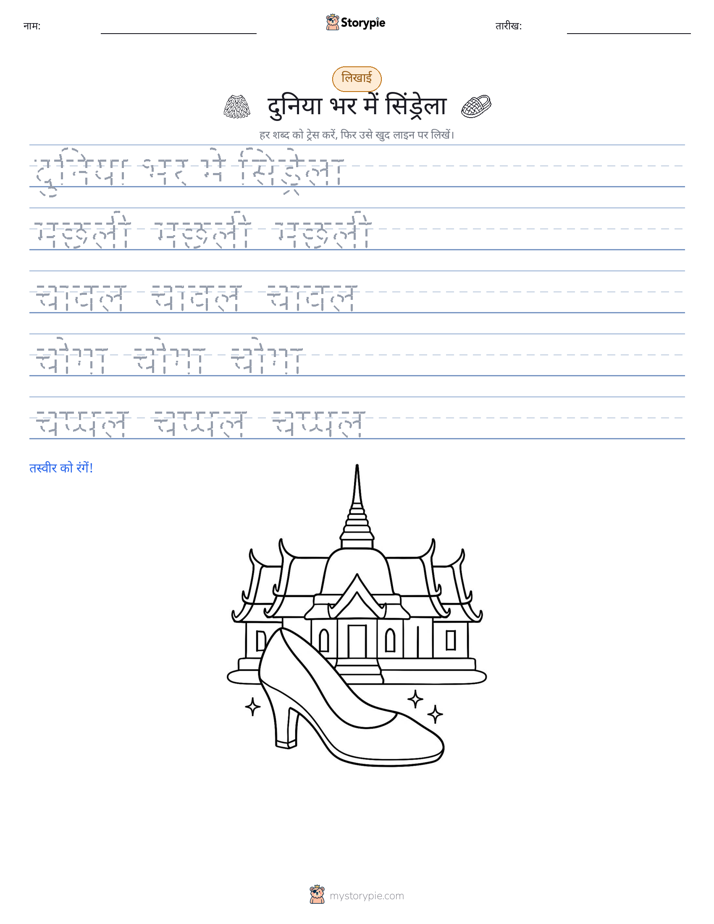 नाम:
Storypie
तारीख:
लिखाई
दुनिया भर में सिंड्रेला
हर शब्द को ट्रेस करें, फिर उसे खुद लाइन पर लिखें।
दुनिया भर में सिंड्रेला
मछली मछली मछली
चावल चावल चावल
चोगा चोगा चोगा
चप्पल चप्पल चप्पल
तस्वीर को रंगें!
mystorypie.com